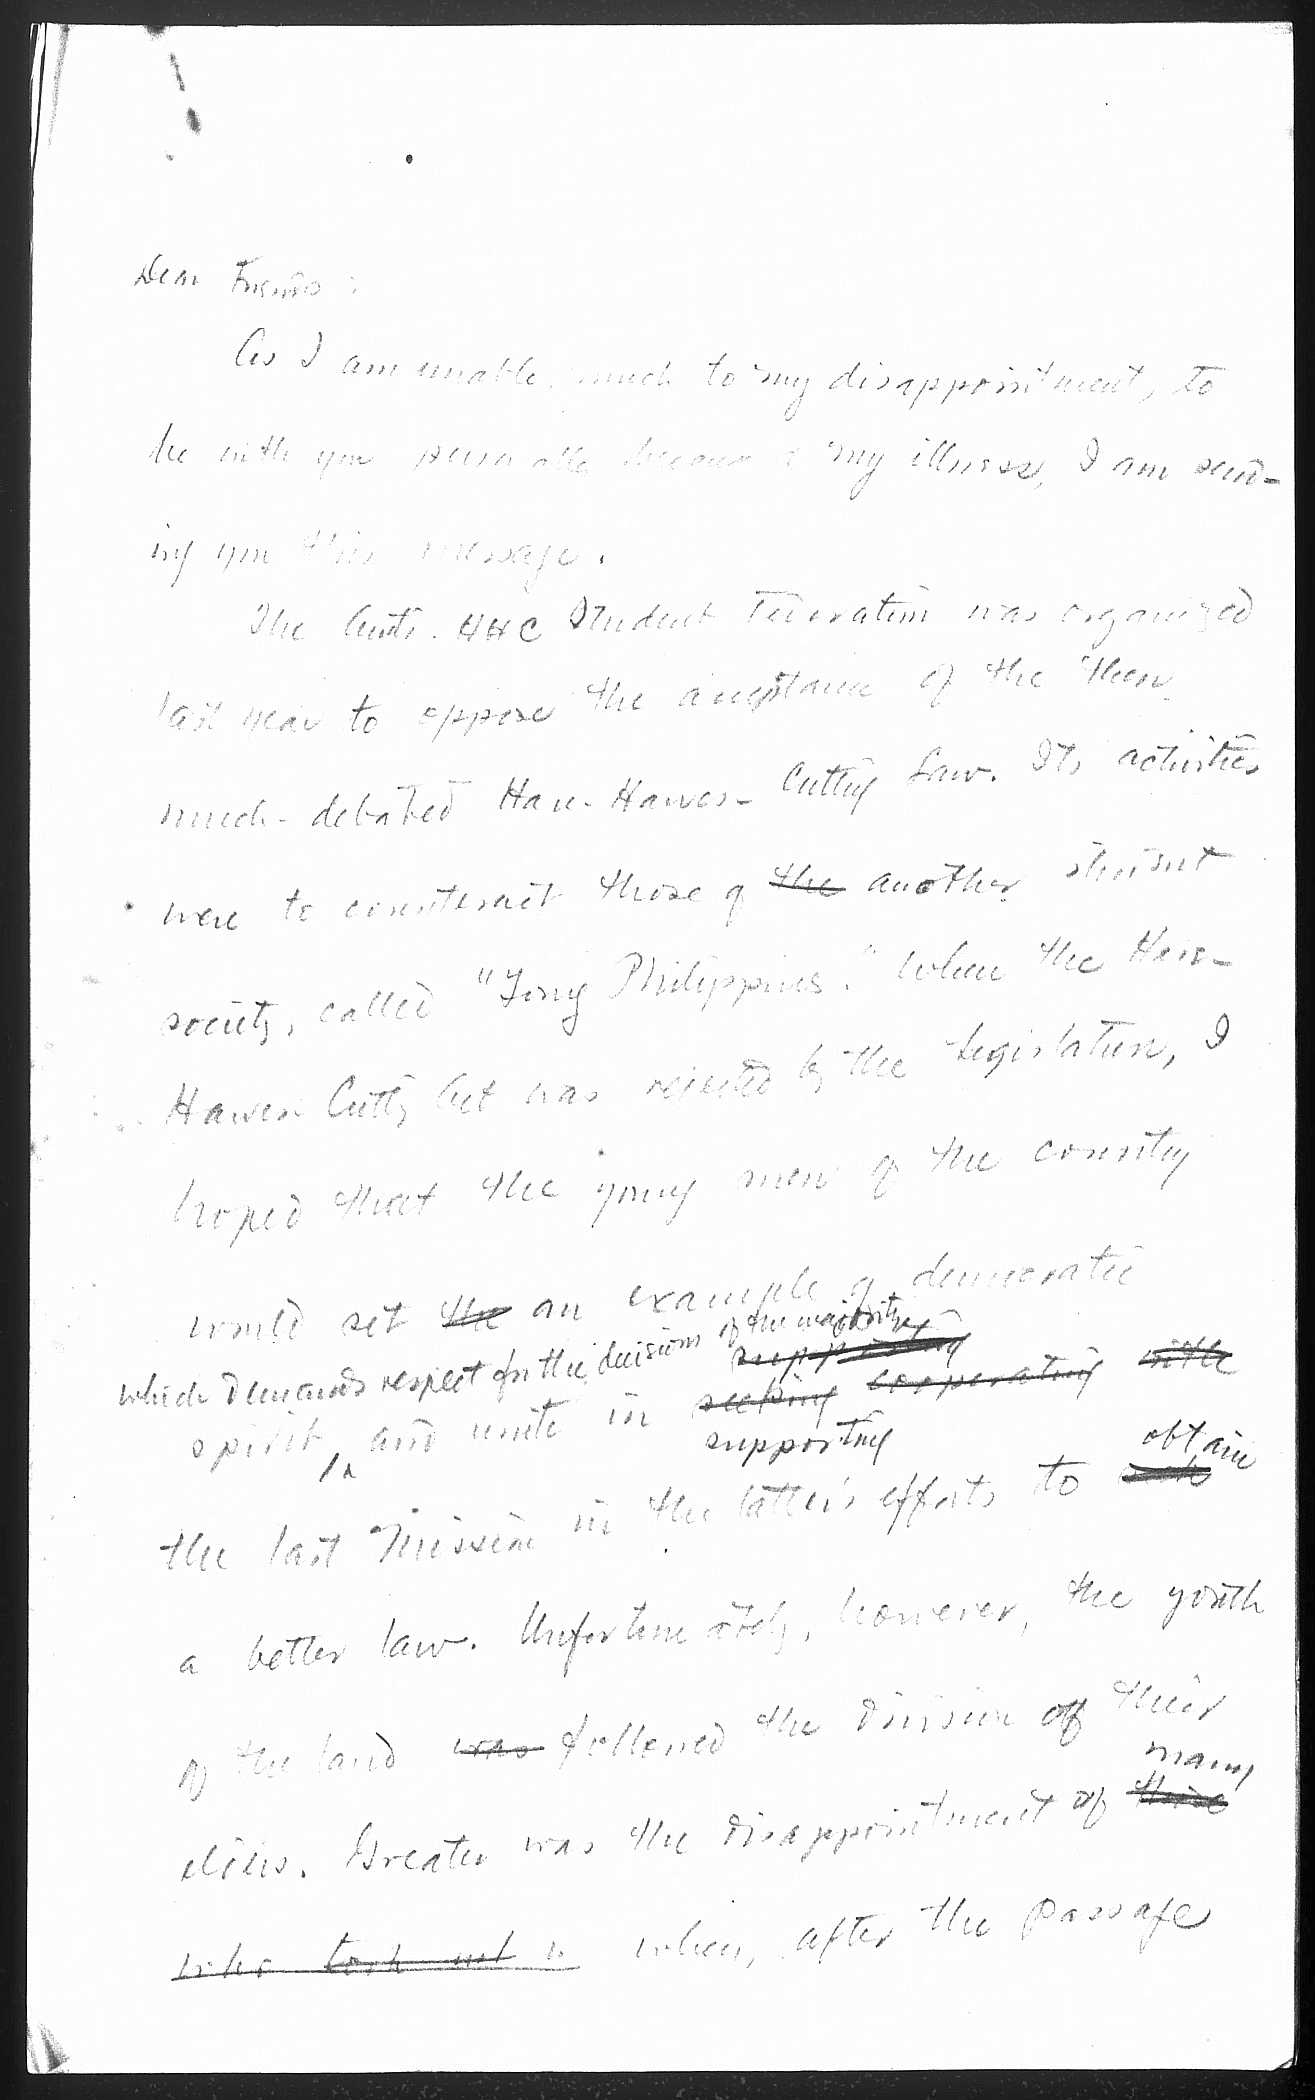 Dear Friends:
As I am unable, much to my disappointment, to
be with you personally because of my illness, I am send-
ing you this message.
The Anti-HHC Student Federation was organized
last year to oppose the acceptance of the then
much-debated Hare-Hawes-Cutting Law. Its activities
were to counteract those of the another student
society, called "Young Philippines." When the Hare-
Hawes-Cutting Act was rejected by the Legislature, I
hoped that the young men of the country
would set the an example of democratic
which demands respect for the decisions of the majority
supporting
spirit, and unite in seeking cooperating with
supporting obtain
the last Mission in the latter's efforts to seek
a better law. Unfortunately, however, the youth
of the land was followed the division of their
many
elders. Greater was the disappointment of those
who took not when, after the passage